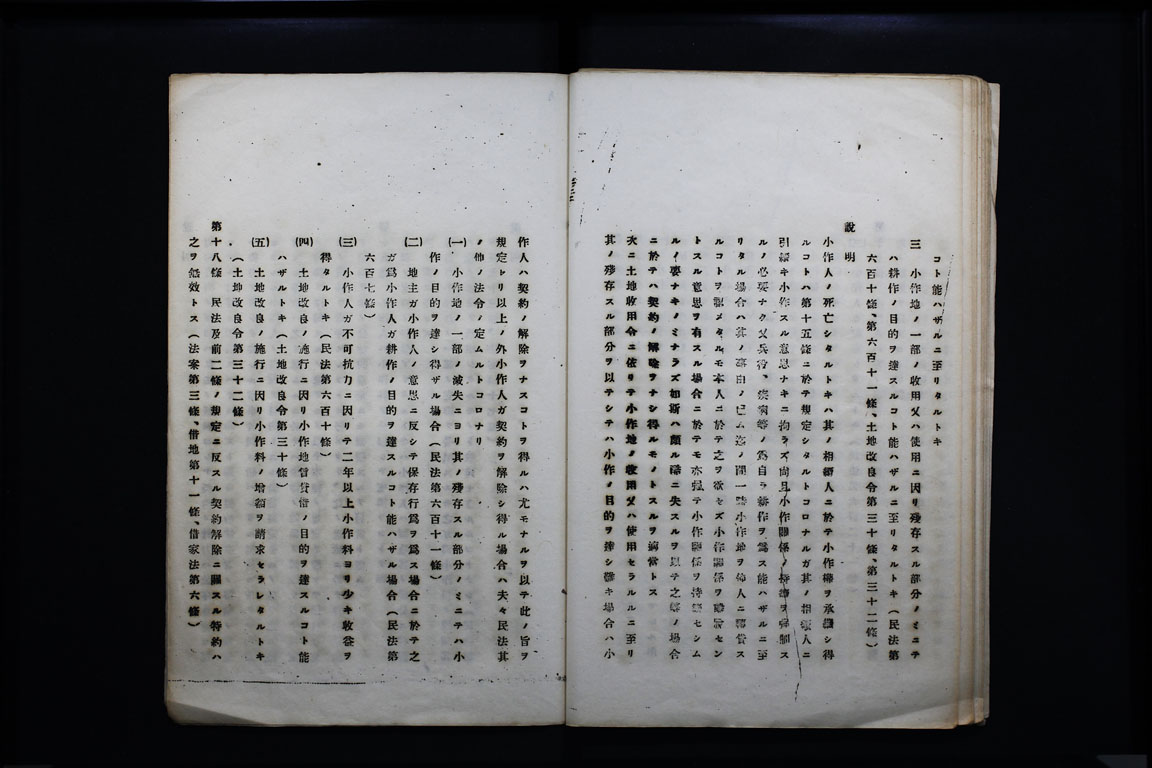 コト能ハザルニ至リタルトキ
三　小作地ノ一部ノ收用又ハ使用ニ因リ殘存スル部分ノミニテ
ハ耕作ノ目的ヲ達スルコト能ハザルニ至リタルトキ（民法第
六百十條、第六百十一條、土地改良令第三十條、第三十二條）
說　明
小作人ノ死亡シタルトキハ其ノ相續人ニ於テ小作權ヲ承繼シ得
ルコトハ第十五條ニ於テ規定シタルトコロナルガ其ノ相續人ニ
引續キ小作スル意思ナキニ拘ラズ尚且小作關係ノ持續ヲ强制ス
ルノ必要ナク又兵役、疾病等ノ爲自ラ耕作ヲ爲ス能ハザルニ至
リタル場合ハ其ノ事由ノ已ム迄ノ間一時小作地ヲ他人ニ轉貸ス
ルコトヲ認メタルモ本人ニ於テ之ヲ欲セズ小作關係ヲ離脫セン
トスル意思ヲ有スル場合ニ於テモ亦强テ小作關係ヲ持續セシム
ルノ要ナキノミナラズ如斯ハ頗ル酷ニ失スルヲ以テ之等ノ場合
ニ於テハ契約ノ解除ヲナシ得ルモノトスルヲ適當トス
次ニ土地收用令ニ依リテ小作地ノ收用又ハ使用セラルルニ至リ
其ノ殘存スル部分ヲ以テシテハ小作ノ目的ヲ達シ難キ場合ハ小
作人ハ契約ノ解除ヲナスコトヲ得ルハ尤モナルヲ以テ此ノ旨ヲ
規定トリ以上ノ外小作人ガ契約ヲ解除シ得ル場合ハ夫々民法其
ノ他ノ法令ノ定ムルトコロナリ
(一)　小作地ノ一部ノ滅失ニヨリ其ノ殘存スル部分ノミニテハ小
作ノ目的ヲ達シ得ザル場合（民法第六百十一條）
(二)　地主ガ小作人ノ意思ニ反シテ保存行爲ヲ爲ス場合ニ於テ之
ガ爲小作人ガ耕作ノ目的ヲ達スルコト能ハザル場合（民法第
六百七條）
(三)　小作人ガ不可抗力ニ因リテ二年以上小作料ヨリ少キ收益ヲ
得タルトキ（民法第六百十條）
(四)　土地改良ノ施行ニ因リ小作地賃貸借ノ目的ヲ達スルコト能
ハザルトキ（土地改良令第三十條）
(五)　土地改良ノ施行ニ因リ小作料ノ增額ヲ請求セラレタルトキ
（土地改良令第三十二條）
第十八條　民法及前二條ノ規定ニ反スル契約解除ニ關スル特約ハ
之ヲ無效トス（法案第三條、借地第十一條、借家法第六條）